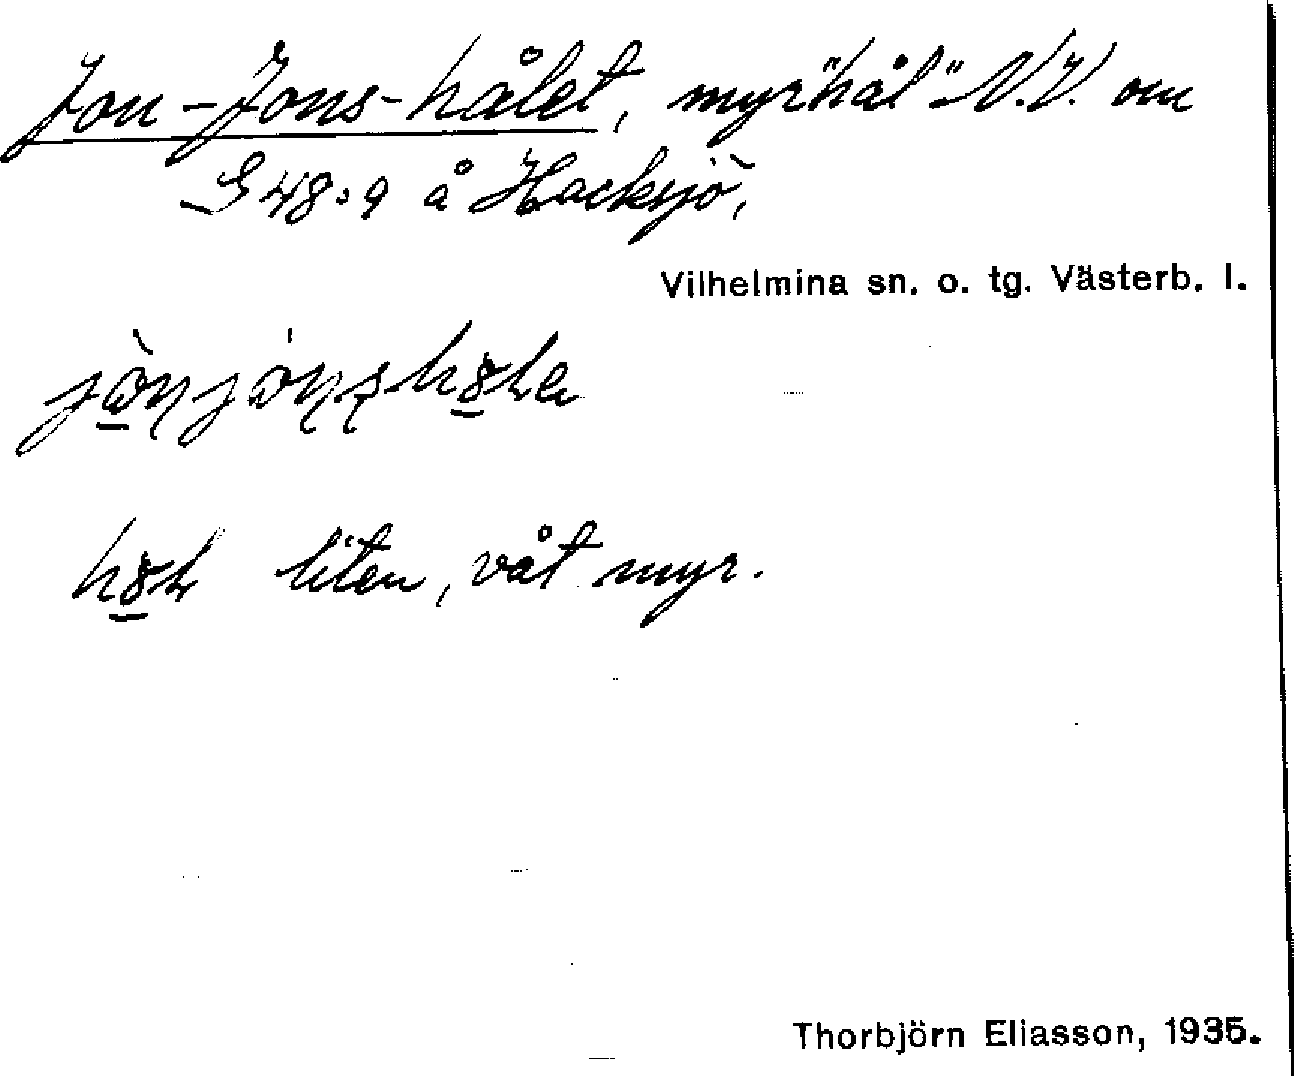 Jon-Jons-hålet, myr"hål" N.V. om
S 48:9 å Hacksjö,
Vilhelmina sn. o. tg. Västerb. l.
liten, våt myr.
Thorbjörn Eliasson, 1935.